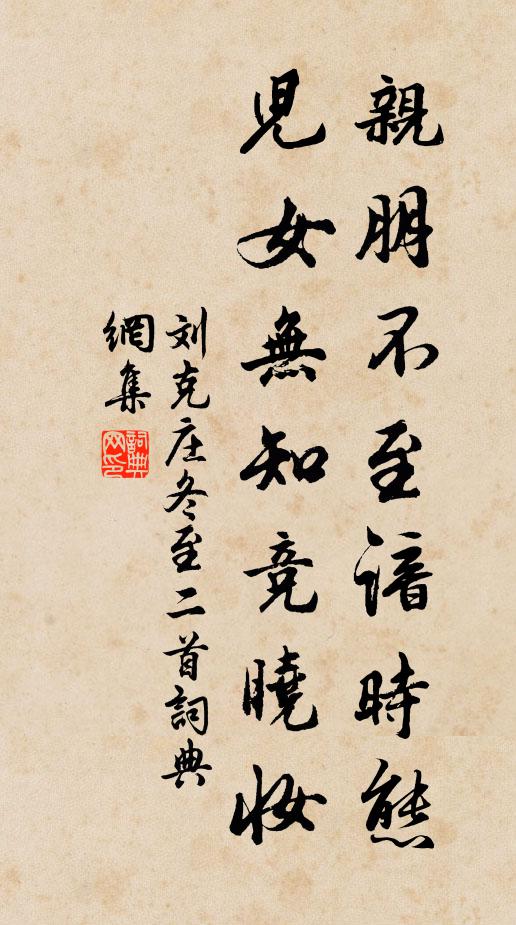 親朋不至諳時態
兒女無知竞曉妆
刘克庄冬至二首詞典
網集
詞典
网印